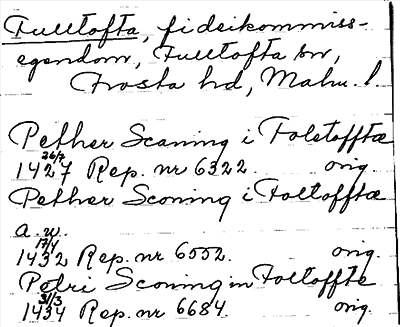 Fulltofta, fideikommiss-
egendom, Fulltofta sn,
Frosta hd, Malm. l.
Pether Scaning i Foletofftæ
1427 26/7 Rep. nr 6322. orig.
Pether Scaning i Foltofftæ
a. w.
1432 17/4 Rep. nr 6552. orig.
Petri Scaning in Foltoffte
1434 31/3 Rep. nr 6684. orig.